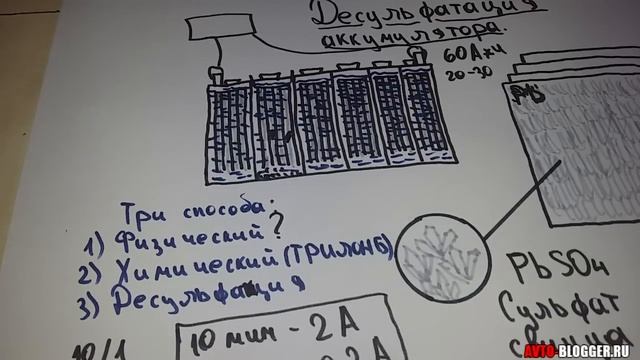 Десульфатация
аккумулятора.
60 А*ч
20-30
Pb
Три способа:
1) Физический?
2) Химический (ТРИЛОН Б)
3) Десульфация
PbSO4
Сульфат
свинца
10/1
10 мин - 2А
AVTO-BLOGGER.RU